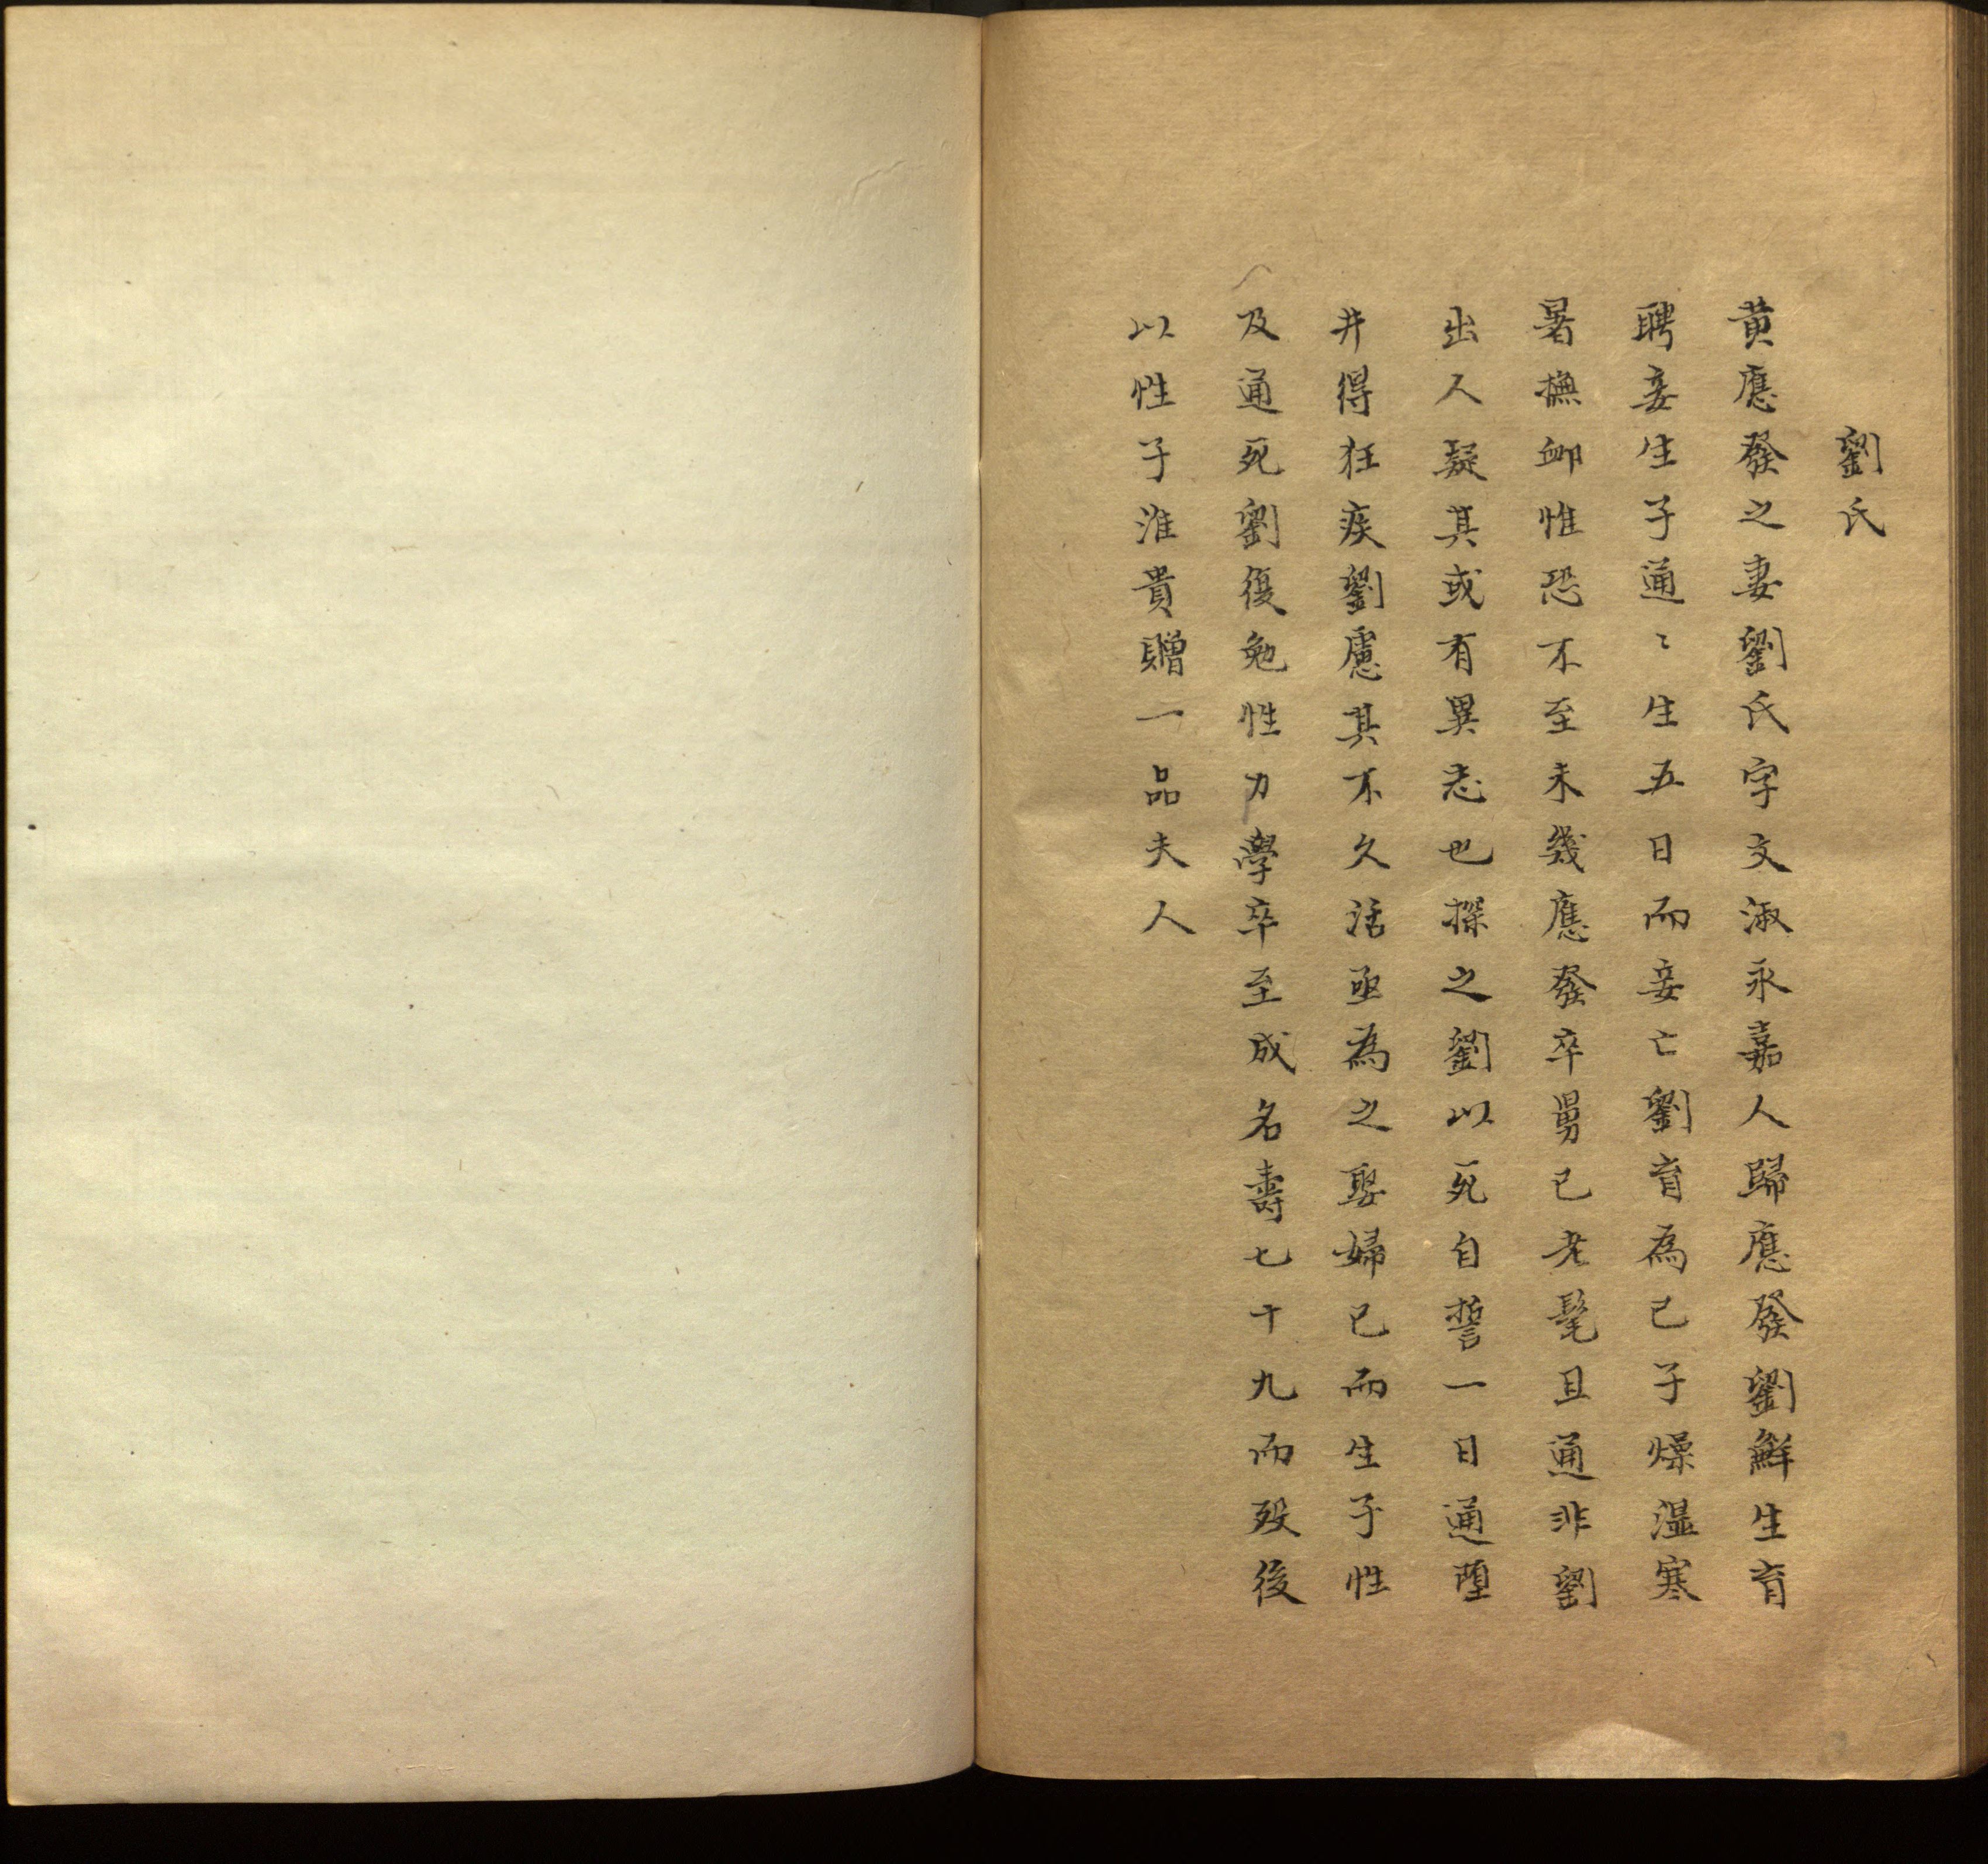 劉氏
黄應發之妻劉氏字文淑永嘉人歸應發劉鮮生育
聘妾生子通〻生五日而妾亡劉育為己子燥濕寒
暑撫卹惟恐不至未幾應發卒舅已老髦且通非劉
出人疑其或有異志也探之劉以死自誓一日通墮
井得狂疾劉慮其不久活亟為之娶婦已而生子性
及通死劉復勉性力學卒至成名壽七十九而歿後
以性子淮貴贈一品夫人